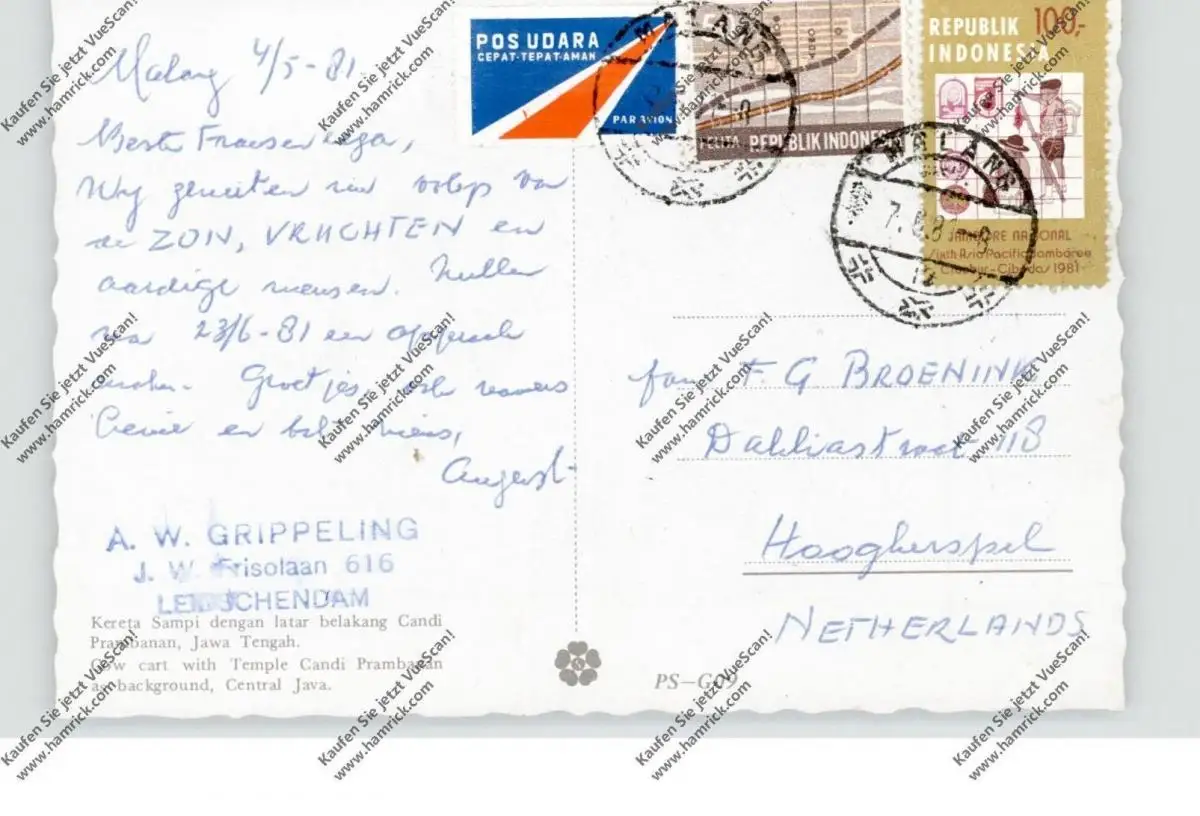 Malang 4/5-81
Beste
Wij genieten volop van
de ZON, VRUCHTEN en
aardige mensen. Zullen
na 23/6-81 een
Groetjes, ook namens
en
August
A. W. GRIPPELING
J. W. Frisolaan 616
LEIDSCHENDAM
Kereta Sampi dengan latar belakang Candi
Prambanan, Jawa Tengah.
Cow cart with Temple Candi Prambanan
as background, Central Java.
POS UDARA
CEPAT-TEPAT-AMAN
PAR AVION
MALANG
50
PELITA REPUBLIK INDONESIA
REPUBLIK 100,-
INDONESIA
MALANG
JAMBORE NASIONAL
Sixth Asia Pacific Jamboree
Cibubur-Cibodas 1981
fam F G BROENINK
Dahliastraat 118
Hoogkerspel
NETHERLANDS
PS-G09
Kaufen Sie jetzt VueScan!
www.hamrick.com